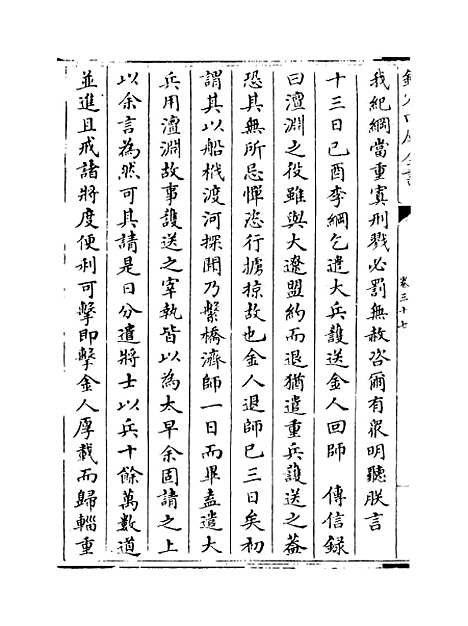 欽定四庫全書
卷三十七
我紀綱當重寘刑戮必罰無赦咨爾有衆明聽朕言
十三日己酉李綱乞遣大兵護送金人回師　傳信録
曰澶淵之役雖與大遼盟約而退猶遣重兵護送之葢
恐其無所忌憚恣行擄掠故也金人退師已三日矣初
謂其以船栰渡河探聞乃繫橋濟師一日而畢盍遣大
兵用澶淵故事護送之宰執皆以為太早余固請之上
以余言為然可其請是日分遣將士以兵十餘萬數道
並進且戒諸將度便利可擊即擊金人厚載而歸輜重